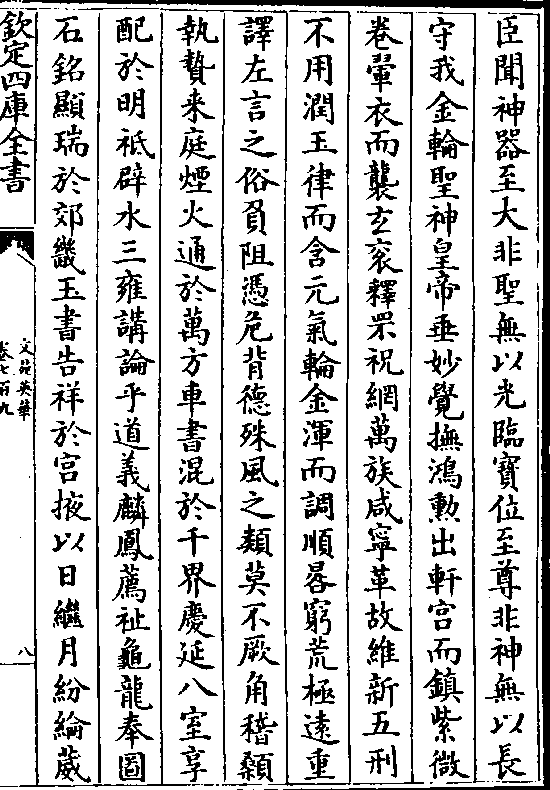 臣聞神器至大非聖無以光臨寳位至尊非神無以長
守我金輪聖神皇帝垂妙覺撫鴻勲出軒宫而鎮紫微
卷翬衣而襲玄衮釋罘祝網萬族咸寧革故維新五刑
不用潤玉律而含元氣輪金渾而調順晷窮荒極逺重
譯左言之俗負阻憑危背德殊風之類莫不厥角稽顙
執贄来庭煙火通於萬方車書混於千界慶延八室享
配於明祗辟水三雍講論乎道義麟鳳薦祉龜龍奉圖
石銘顯瑞於郊畿玉書告祥於宫掖以日繼月紛綸葳
欽定四庫全書
文苑英華
卷七百九
八